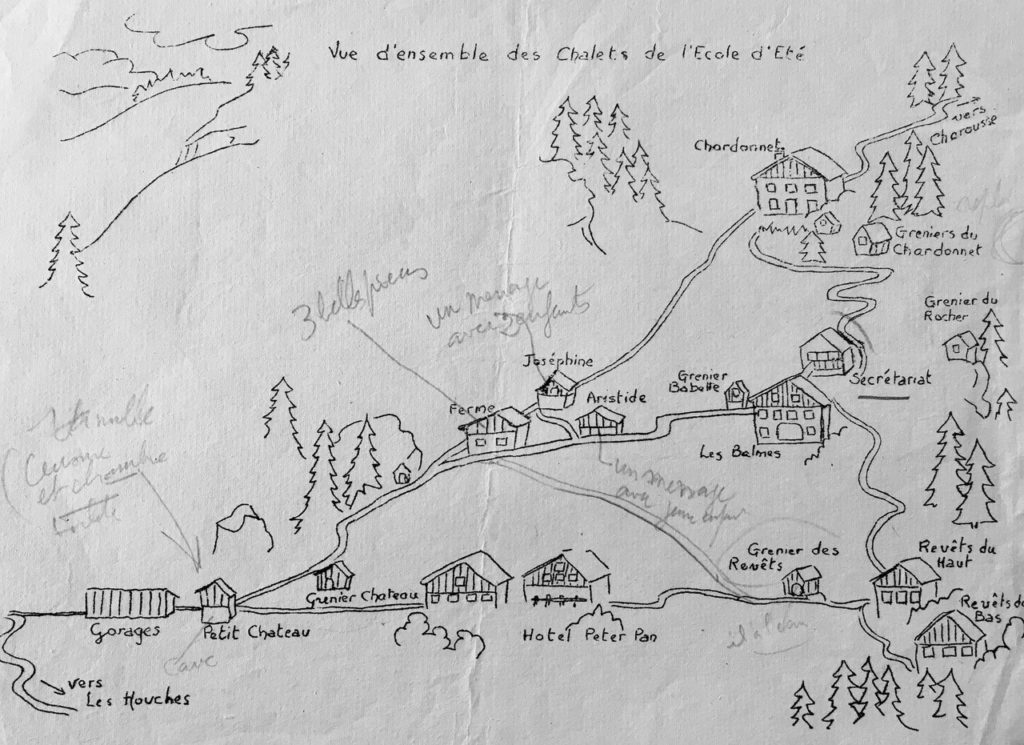 Vue d'ensemble des Chalets de l'Ecole d'Eté
vers
Charousse
Chardonnet
Greniers du
Chardonnet
3 belle pieces
un menage
avec 2 enfants
Grenier du
Rocher
Joséphine
Grenier
Babette
Secrétariat
Ferme
Aristide
Les Balmes
et chambre
un menage
avec jeune enfant
Grenier des
Revêts
Revêts du
Haut
Grenier Chateau
Revêts du
Bas
Garages
Petit Chateau
Hotel Peter Pan
Cave
vers
Les Houches